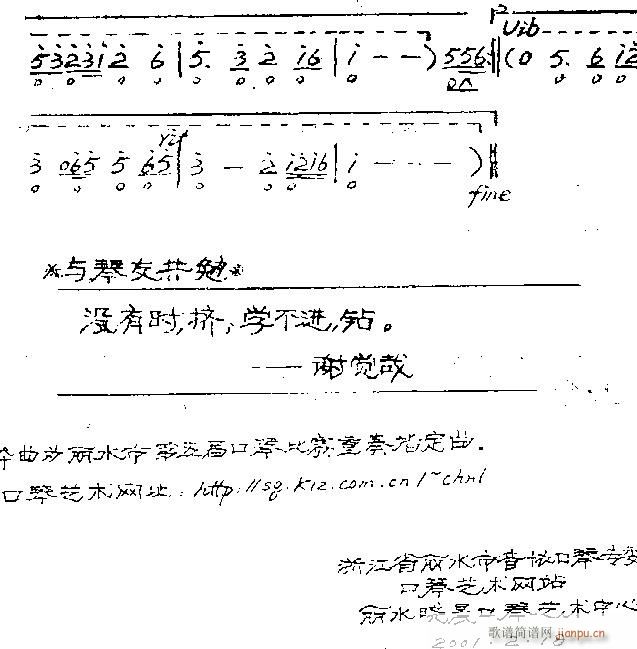 Vib
5323i2 6 | 5. 3 2 i6 | i - - ) 556 || ( 0 5. 6 i2
Vib
3 065 5 65 | 3 - 2 i2i6 | i - - - )
fine
*与琴友共勉*
没有时,挤,学不进,钻。
——谢觉哉
本曲为丽水市第五届口琴比赛重奏指定曲.
口琴艺术网址: http://sq.k12.com.cn/~chnl
浙江省丽水市音协口琴专委
口琴艺术网站
丽水 口琴艺术中心
2001.2.18
歌谱简谱网 jianpu.cn